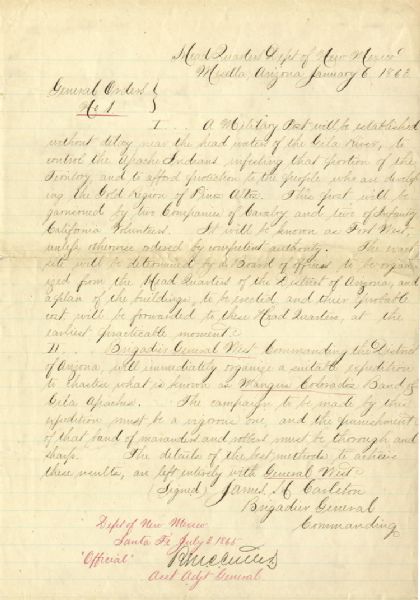 Head Quarters Dept of New Mexico
Mesilla, Arizona January 6, 1863
General Orders
No 1.
I. A Military Post will be established
without delay near the head waters of the Gila River, to
control the Apache Indians infesting that portion of the
Territory and to afford protection to the people who are develop
ing the Gold Region of Pinos Altos. This post will be
garrisoned by two Companies of Cavalry and two of Infantry
California Volunteers. It will be known as Fort West,
unless otherwise ordered by competent authority. The exact
site will be determined by a Board of officers to be organ
ized from the Head Quarters of the District of Arizona, and
a plan of the buildings, to be erected and their probable
cost will be forwarded to these Head Quarters, at the
earliest practicable moment.
II Brigadier General West Commanding the District
of Arizona, will immediately organize a suitable expedition
to chastise what is known as Mangus Colorados Band of
Gila Apaches. The campaign to be made by this
expedition must be a vigorous one, and the punishment
of that band of marauders and robbers must be thorough and
sharp. The details of the best methods to achieve
these results, are left entirely with General West
(Signed) James H Carleton
Brigadier General
Commanding
Dept of New Mexico
Santa Fé July 2 1865
"Official"
Asst Adjt General